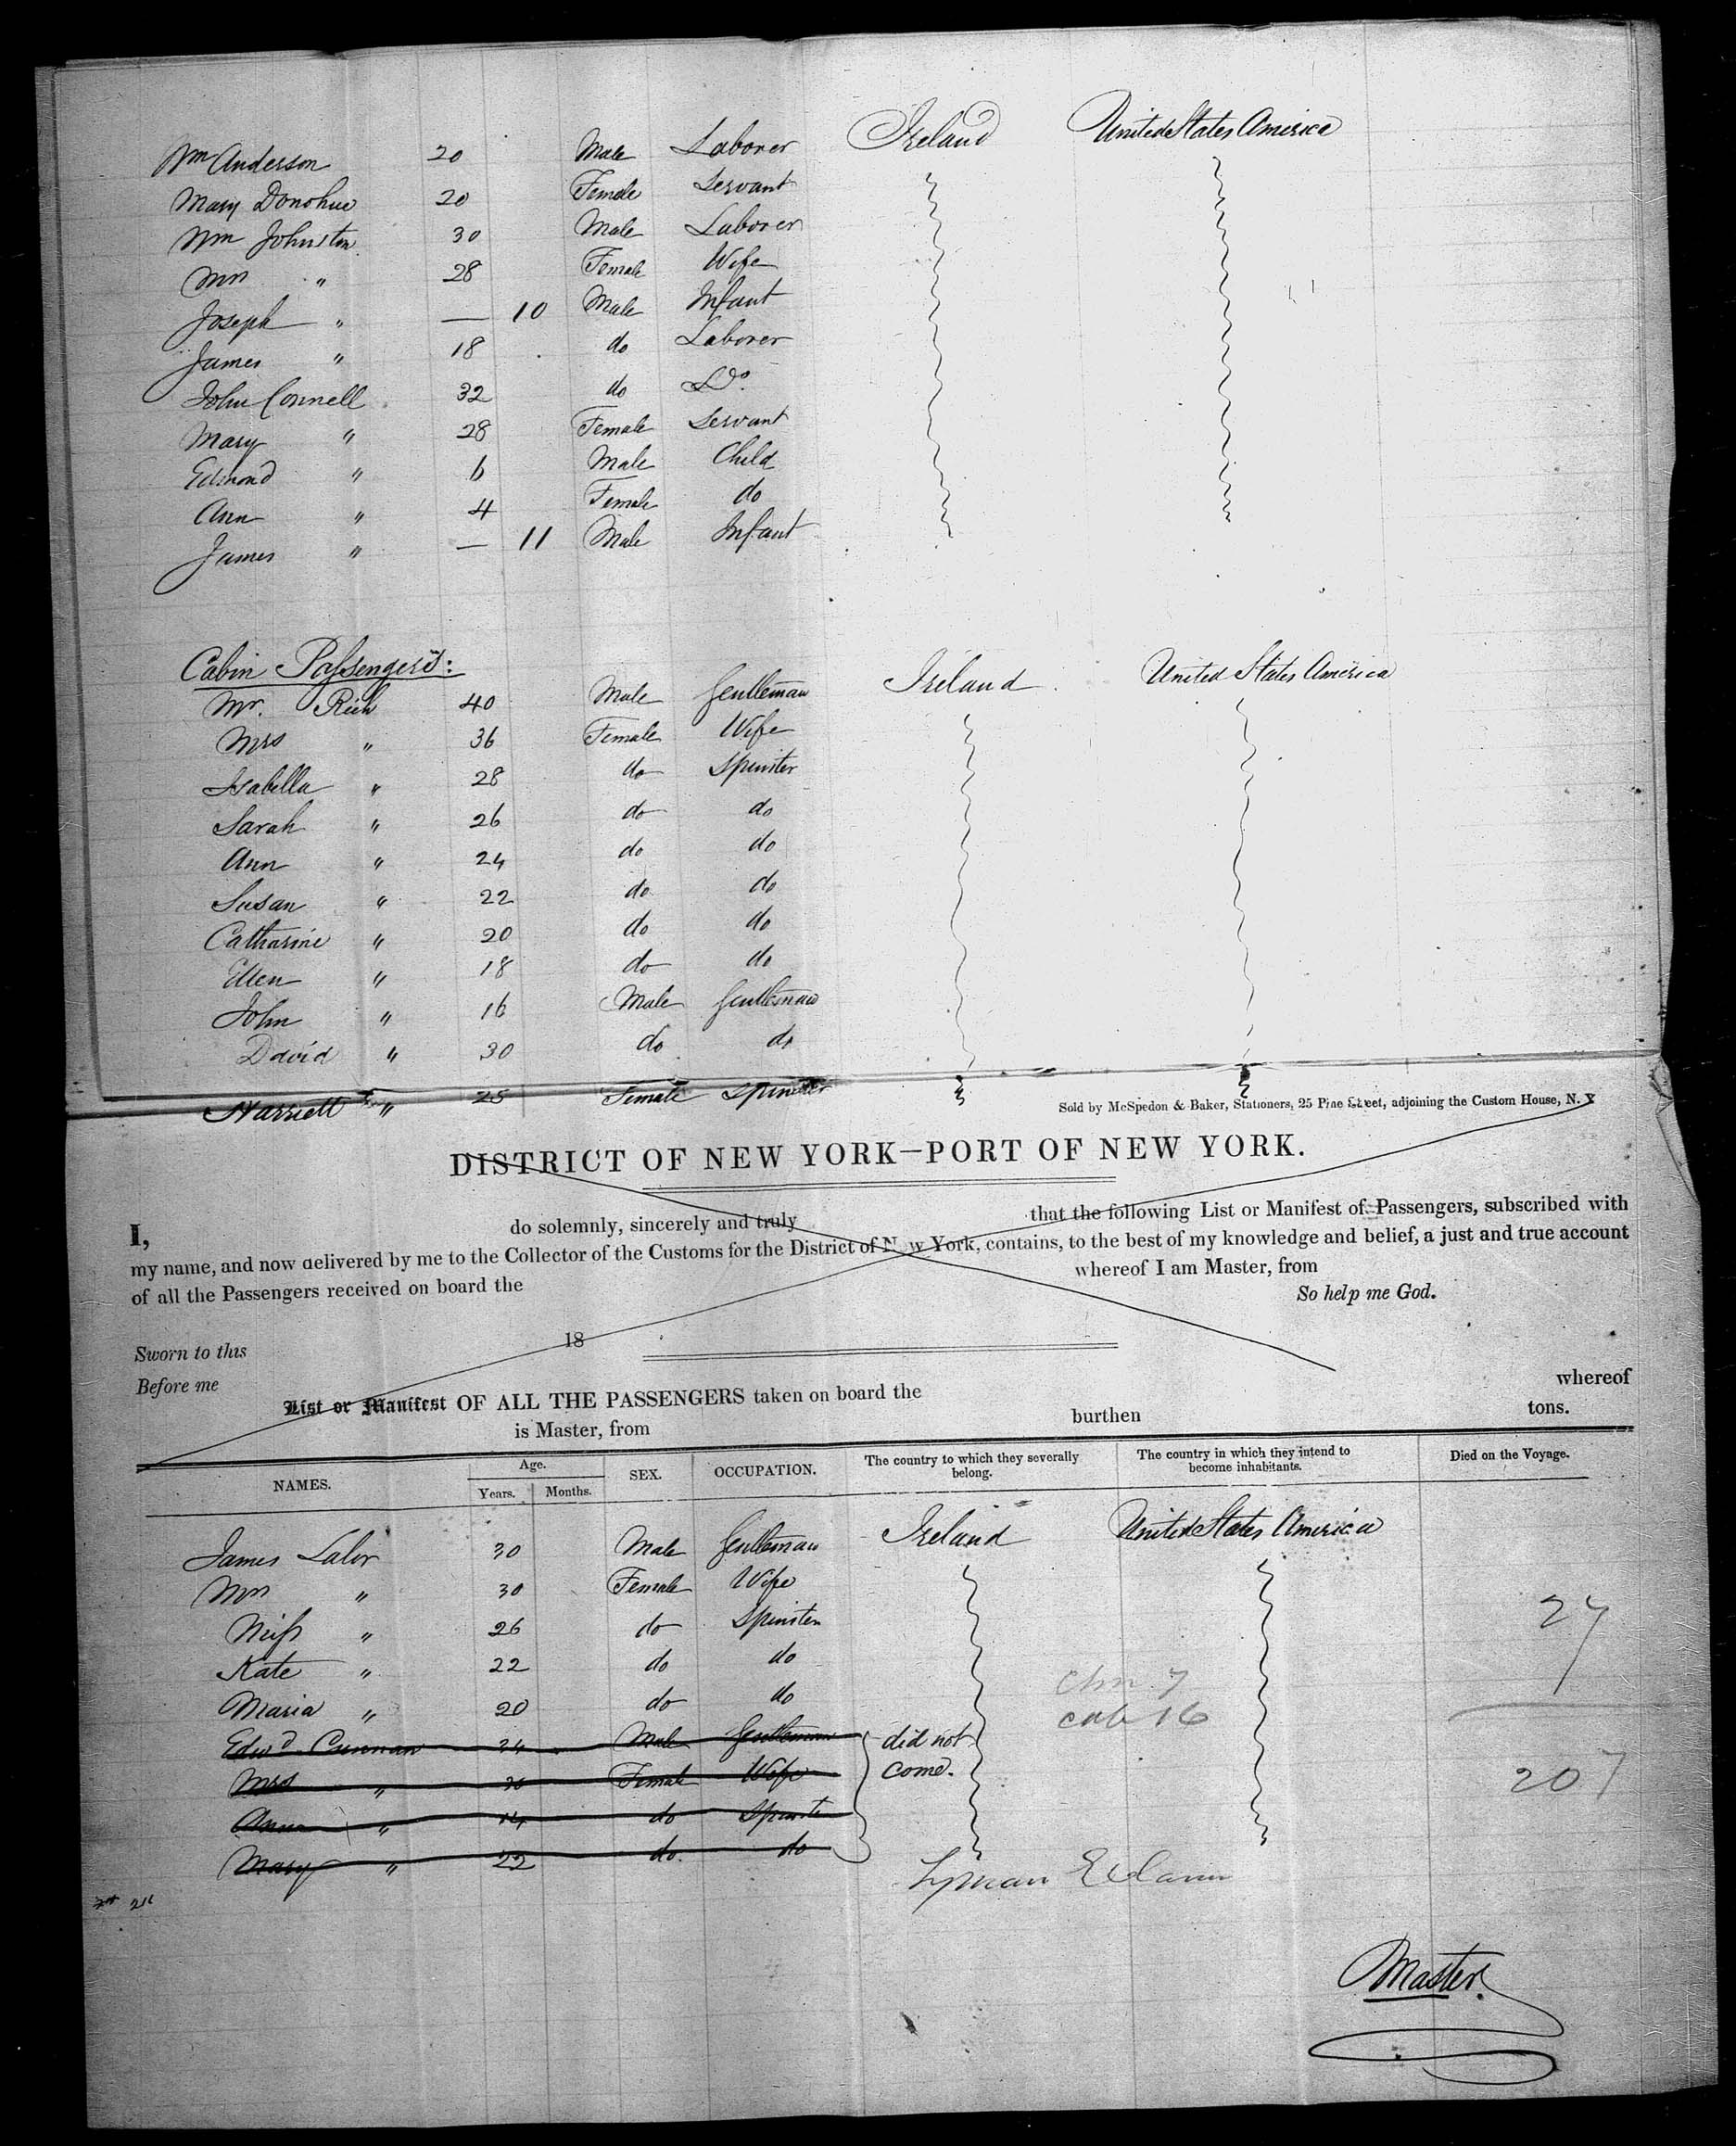 Wm Anderson 20 Male Laborer Ireland United States America
Mary Donohue 20 Female Servant
Wm Johnston 30 Male Laborer
Mrs " 28 Female Wife
Joseph " — 10 Male Infant
James " 18 do Laborer
John Connell 32 do Do.
Mary " 28 Female Servant
Edmond " 6 Male Child
Ann " 4 Female do
James " — 11 Male Infant
Cabin Passengers:
Mr. Rich 40 Male Gentleman Ireland United States America
Mrs " 36 Female Wife
Isabella " 28 do Spinster
Sarah " 26 do do
Ann " 24 do do
Susan " 22 do do
Catharine " 20 do do
Ellen " 18 do do
John " 16 Male Gentleman
David " 30 do do
Harriett " 25 Female Spinster
Sold by McSpedon & Baker, Stationers, 25 Pine Street, adjoining the Custom House, N. Y
DISTRICT OF NEW YORK—PORT OF NEW YORK.
I, do solemnly, sincerely and truly that the following List or Manifest of Passengers, subscribed with
my name, and now delivered by me to the Collector of the Customs for the District of New York, contains, to the best of my knowledge and belief, a just and true account
of all the Passengers received on board the whereof I am Master, from
So help me God.
Sworn to this 18
Before me
List or Manifest OF ALL THE PASSENGERS taken on board the whereof
is Master, from burthen tons.
NAMES. Age. Years. Months. SEX. OCCUPATION. The country to which they severally belong. The country in which they intend to become inhabitants. Died on the Voyage.
James Lalor 30 Male Gentleman Ireland United States America
Mrs " 30 Female Wife
Miss " 26 do Spinster
Kate " 22 do do
Maria " 20 do do
27
Chn 7
cab 16
Edwd Curran 34 Male Gentleman did not
Mrs " Female Wife come.
Anna " 24 do Spinster
Mary " 22 do do
207
Lyman
Master.